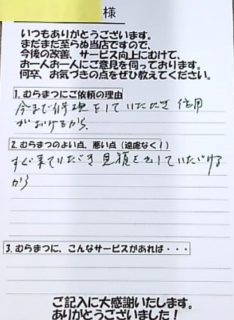 様
いつもありがとうございます。
まだまだ至らぬ当店ですので、
今後の改善、サービス向上にむけて、
お一人お一人にご意見を伺っております。
何卒、お気づきの点をぜひ教えてください。
1. むらまつにご依頼の理由
今まで修理をしていただき 信用
がおけるから.
2. むらまつのよい点、悪い点（遠慮なく！）
すぐ来ていただき 見積をしていただける
から
3. むらまつに、こんなサービスがあれば・・・
ご記入に大感謝いたします。
ありがとうございました！